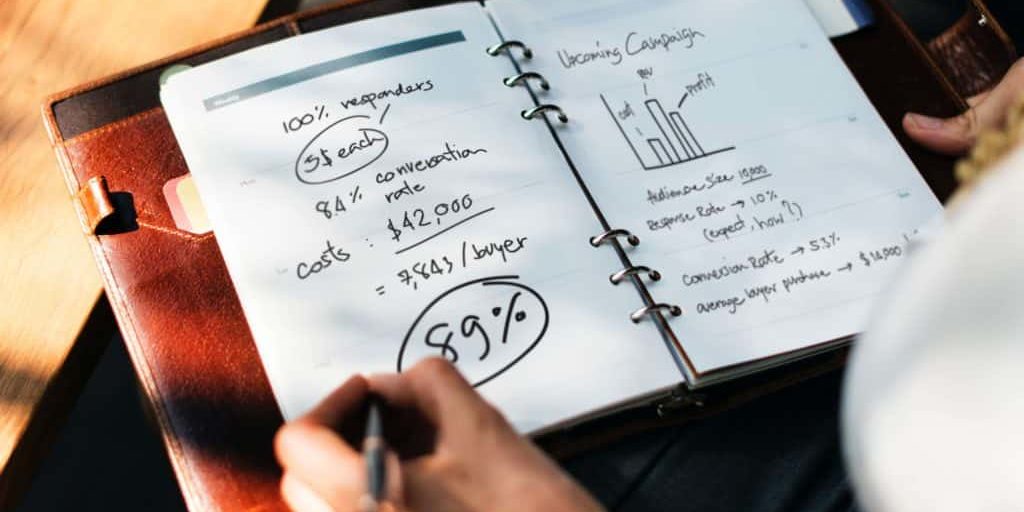 100% responders
5$ each
84% conversation
rate
costs : $42,000
= 7,843 / buyer
89%
Upcoming Campaign
cost
rev
profit
Audience Size 10,000
Response Rate → 10%
(expect, how?)
Conversion Rate → 5.3%
average buyer purchase → $14,000